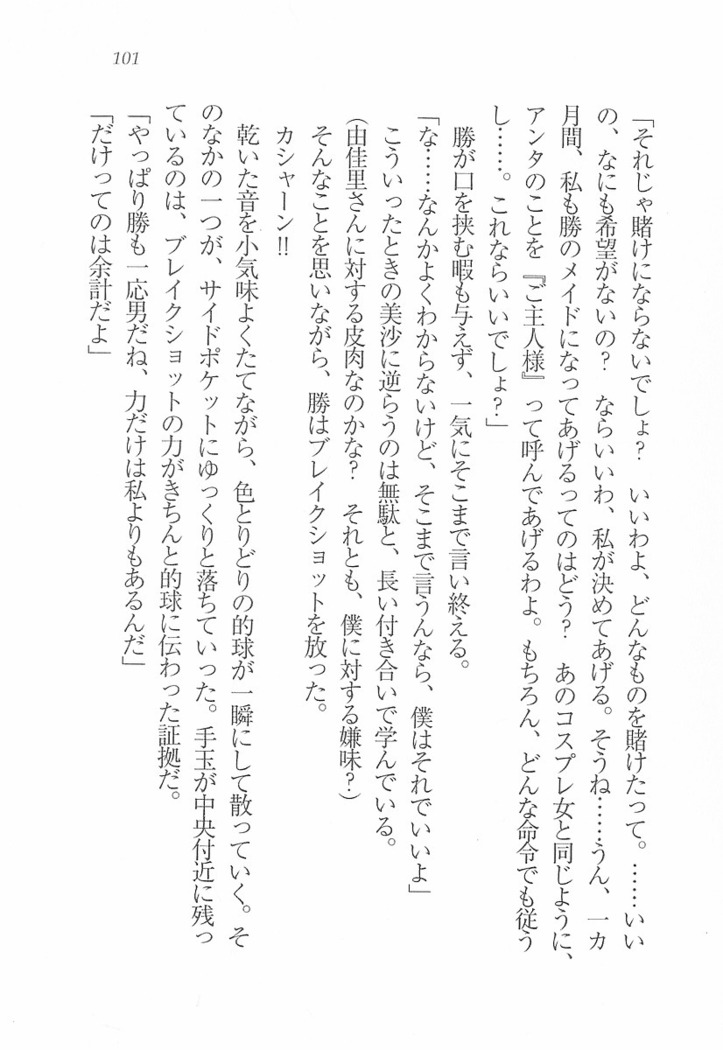 101
「それじゃ賭けにならないでしょ？　いいわよ、どんなものを賭けたって。……いい
の、なにも希望がないの？　ならいいわ、私が決めてあげる。そうね……うん、一カ
月間、私も勝のメイドになってあげるってのはどう？　あのコスプレ女と同じように、
アンタのことを『ご主人様』って呼んであげるわよ。もちろん、どんな命令でも従う
し……。これならいいでしょ？」
勝が口を挟む暇も与えず、一気にそこまで言い終える。
「な……なんかよくわからないけど、そこまで言うんなら、僕はそれでいいよ」
こういったときの美沙に逆らうのは無駄と、長い付き合いで学んでいる。
（由佳里さんに対する皮肉なのかな？　それとも、僕に対する嫌味？）
そんなことを思いながら、勝はブレイクショットを放った。
カシャーン!!
乾いた音を小気味よくたてながら、色とりどりの的球が一瞬にして散っていく。そ
のなかの一つが、サイドポケットにゆっくりと落ちていった。手玉が中央付近に残っ
ているのは、ブレイクショットの力がきちんと的球に伝わった証拠だ。
「やっぱり勝も一応男だね、力だけは私よりもあるんだ」
「だけってのは余計だよ」